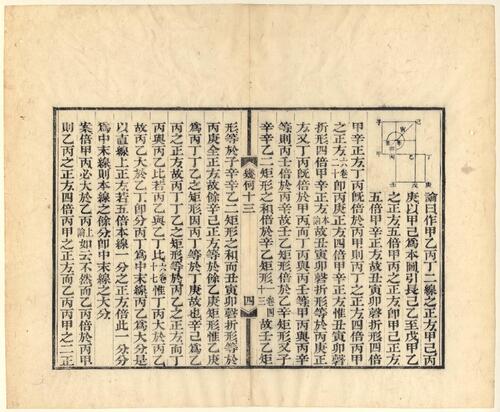 論曰作甲乙丙丁二線之正方甲己丙
庚以甲己為本圖引長己乙至戊甲乙
之正方五倍甲丙之正方卽甲己正方
五倍甲辛正方故丑寅卯罄折形四倍
甲辛正方丙丁旣倍於丙甲則丙丁之正方四倍丙甲
之正方六卷二十卽丙庚正方四倍甲辛正方惟丑寅卯罄
折形四倍甲辛正方本論故丑寅卯罄折形等於丙庚正
方又丁丙旣倍於甲丙而丁丙與丙壬等丙甲與丙辛
等則丙壬倍於丙辛故壬乙矩形倍於辛乙矩形又子
辛辛乙二矩形之和倍於辛乙矩形卷四十三故壬乙矩
幾何十三
四
形等於子辛辛乙二矩形之和而丑寅卯罄折形等於
丙庚全正方故餘辛己正方等於餘乙庚矩形惟乙庚
為丙丁丁乙之矩形因丙丁等於丁庚故也辛己為乙
丙之正方故丙丁丁乙之矩形等於丙乙之正方而丁
丙與丙乙比若丙乙與乙丁比六卷十七惟丁丙大於丙乙
故丙乙大於乙丁卽分丙丁為中末線丙乙為大分是
以直線上正方若五倍本線一分之正方倍此一分分
為中末線則本線之餘分卽中末線之大分
案倍甲丙必大於乙丙上論如云不然而乙丙倍於丙甲
則乙丙之正方四倍丙甲之正方而乙丙丙甲之二正